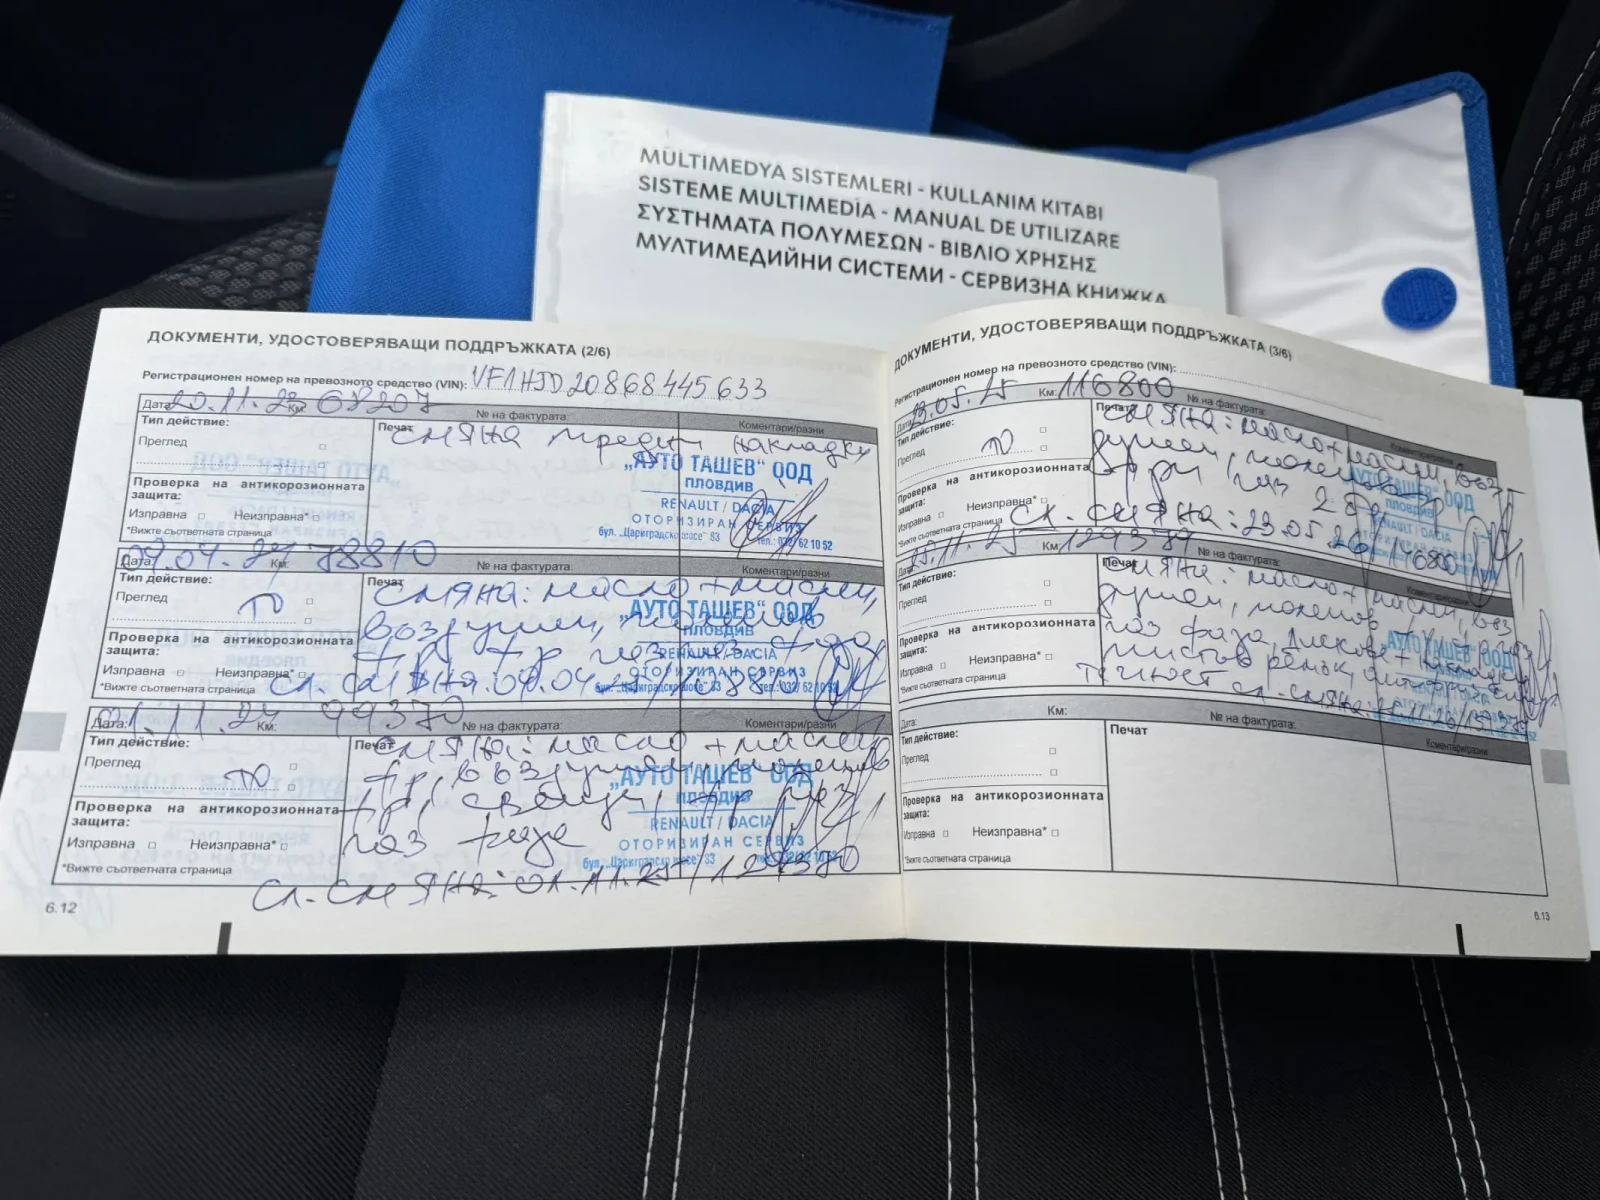 MULTIMEDYA SISTEMLERI - KULLANIM KITABI
SISTEME MULTIMEDIA - MANUAL DE UTILIZARE
ΣΥΣΤΗΜΑΤΑ ΠΟΛΥΜΕΣΩΝ - ΒΙΒΛΙΟ ΧΡΗΣΗΣ
МУЛТИМЕДИЙНИ СИСТЕМИ - СЕРВИЗНА КНИЖКА
ДОКУМЕНТИ, УДОСТОВЕРЯВАЩИ ПОДДРЪЖКАТА (2/6)
Регистрационен номер на превозното средство (VIN): VF1HJD20868445633
Дата: 20.11.23 Км: 68207 № на фактурата:
Коментари/разни
Тип действие:
Печат
смяна предни накладки
Преглед
„АУТО ТАШЕВ“ ООД
ПЛОВДИВ
RENAULT / DACIA
ОТОРИЗИРАН СЕРВИЗ
бул. „Цариградско шосе“ 83 тел.: 032/ 62 10 52
Проверка на антикорозионната
защита:
Изправна Неизправна*
*Вижте съответната страница
Дата: 04.24 Км: 78810 № на фактурата:
Коментари/разни
Тип действие:
Печат
смяна: масло + маслен,
Преглед
ТО
въздушен,
„АУТО ТАШЕВ“ ООД
ПЛОВДИВ
RENAULT / DACIA
ОТОРИЗИРАН СЕРВИЗ
Проверка на антикорозионната
защита:
Изправна Неизправна*
*Вижте съответната страница
сл. смяна:
Дата: 01.11.24 Км: 99370 № на фактурата:
Коментари/разни
Тип действие:
Печат
смяна: масло + маслен
Преглед
ТО
ф-р, въздушен, поленов
„АУТО ТАШЕВ“ ООД
ПЛОВДИВ
ф-р, свещи,
RENAULT / DACIA
ОТОРИЗИРАН СЕРВИЗ
бул. „Цариградско шосе“ 83
газ фаза
Проверка на антикорозионната
защита:
Изправна Неизправна*
*Вижте съответната страница
сл. смяна: 01.11.25 / 129370
6.12
ДОКУМЕНТИ, УДОСТОВЕРЯВАЩИ ПОДДРЪЖКАТА (3/6)
Регистрационен номер на превозното средство (VIN):
Дата: 23.05.25 Км: 116800 № на фактурата:
Коментари/разни
Тип действие:
Печат
смяна: масло + маслен, възд
Преглед
ТО
душен, поленов
„АУТО ТАШЕВ“ ООД
ПЛОВДИВ
RENAULT / DACIA
Проверка на антикорозионната
защита:
Изправна Неизправна*
*Вижте съответната страница
сл. смяна: 23.05.26 / 146800
Дата: 25.11.25 Км: 129379 № на фактурата:
Коментари/разни
Тип действие:
Печат
смяна: масло + маслен, въз
Преглед
душен, поленов
газ фаза, дискове + накладки
Проверка на антикорозионната
защита:
Изправна Неизправна*
*Вижте съответната страница
течност сл. смяна:
Дата: Км: № на фактурата:
Коментари/разни
Тип действие:
Печат
Преглед
Проверка на антикорозионната
защита:
Изправна Неизправна*
*Вижте съответната страница
6.13